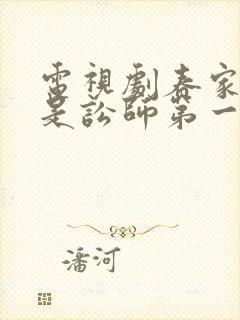 電視劇春家
是訟師第一
潘河